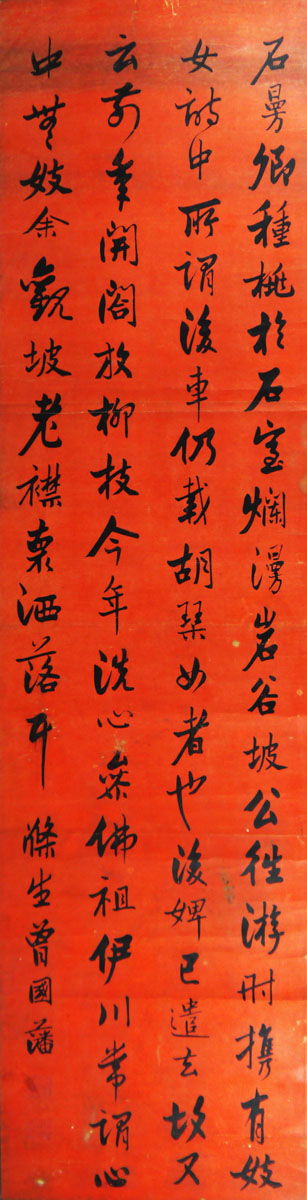 石曼卿種桃於石室爛漫岩谷坡公往游時携有妓
女詩中所謂後車仍載胡琴女者也後婢已遣去故又
云前年開閤放柳枝今年洗心參佛祖伊川常謂心
中無妓余觀坡老襟裏洒落耳 滌生曾國藩